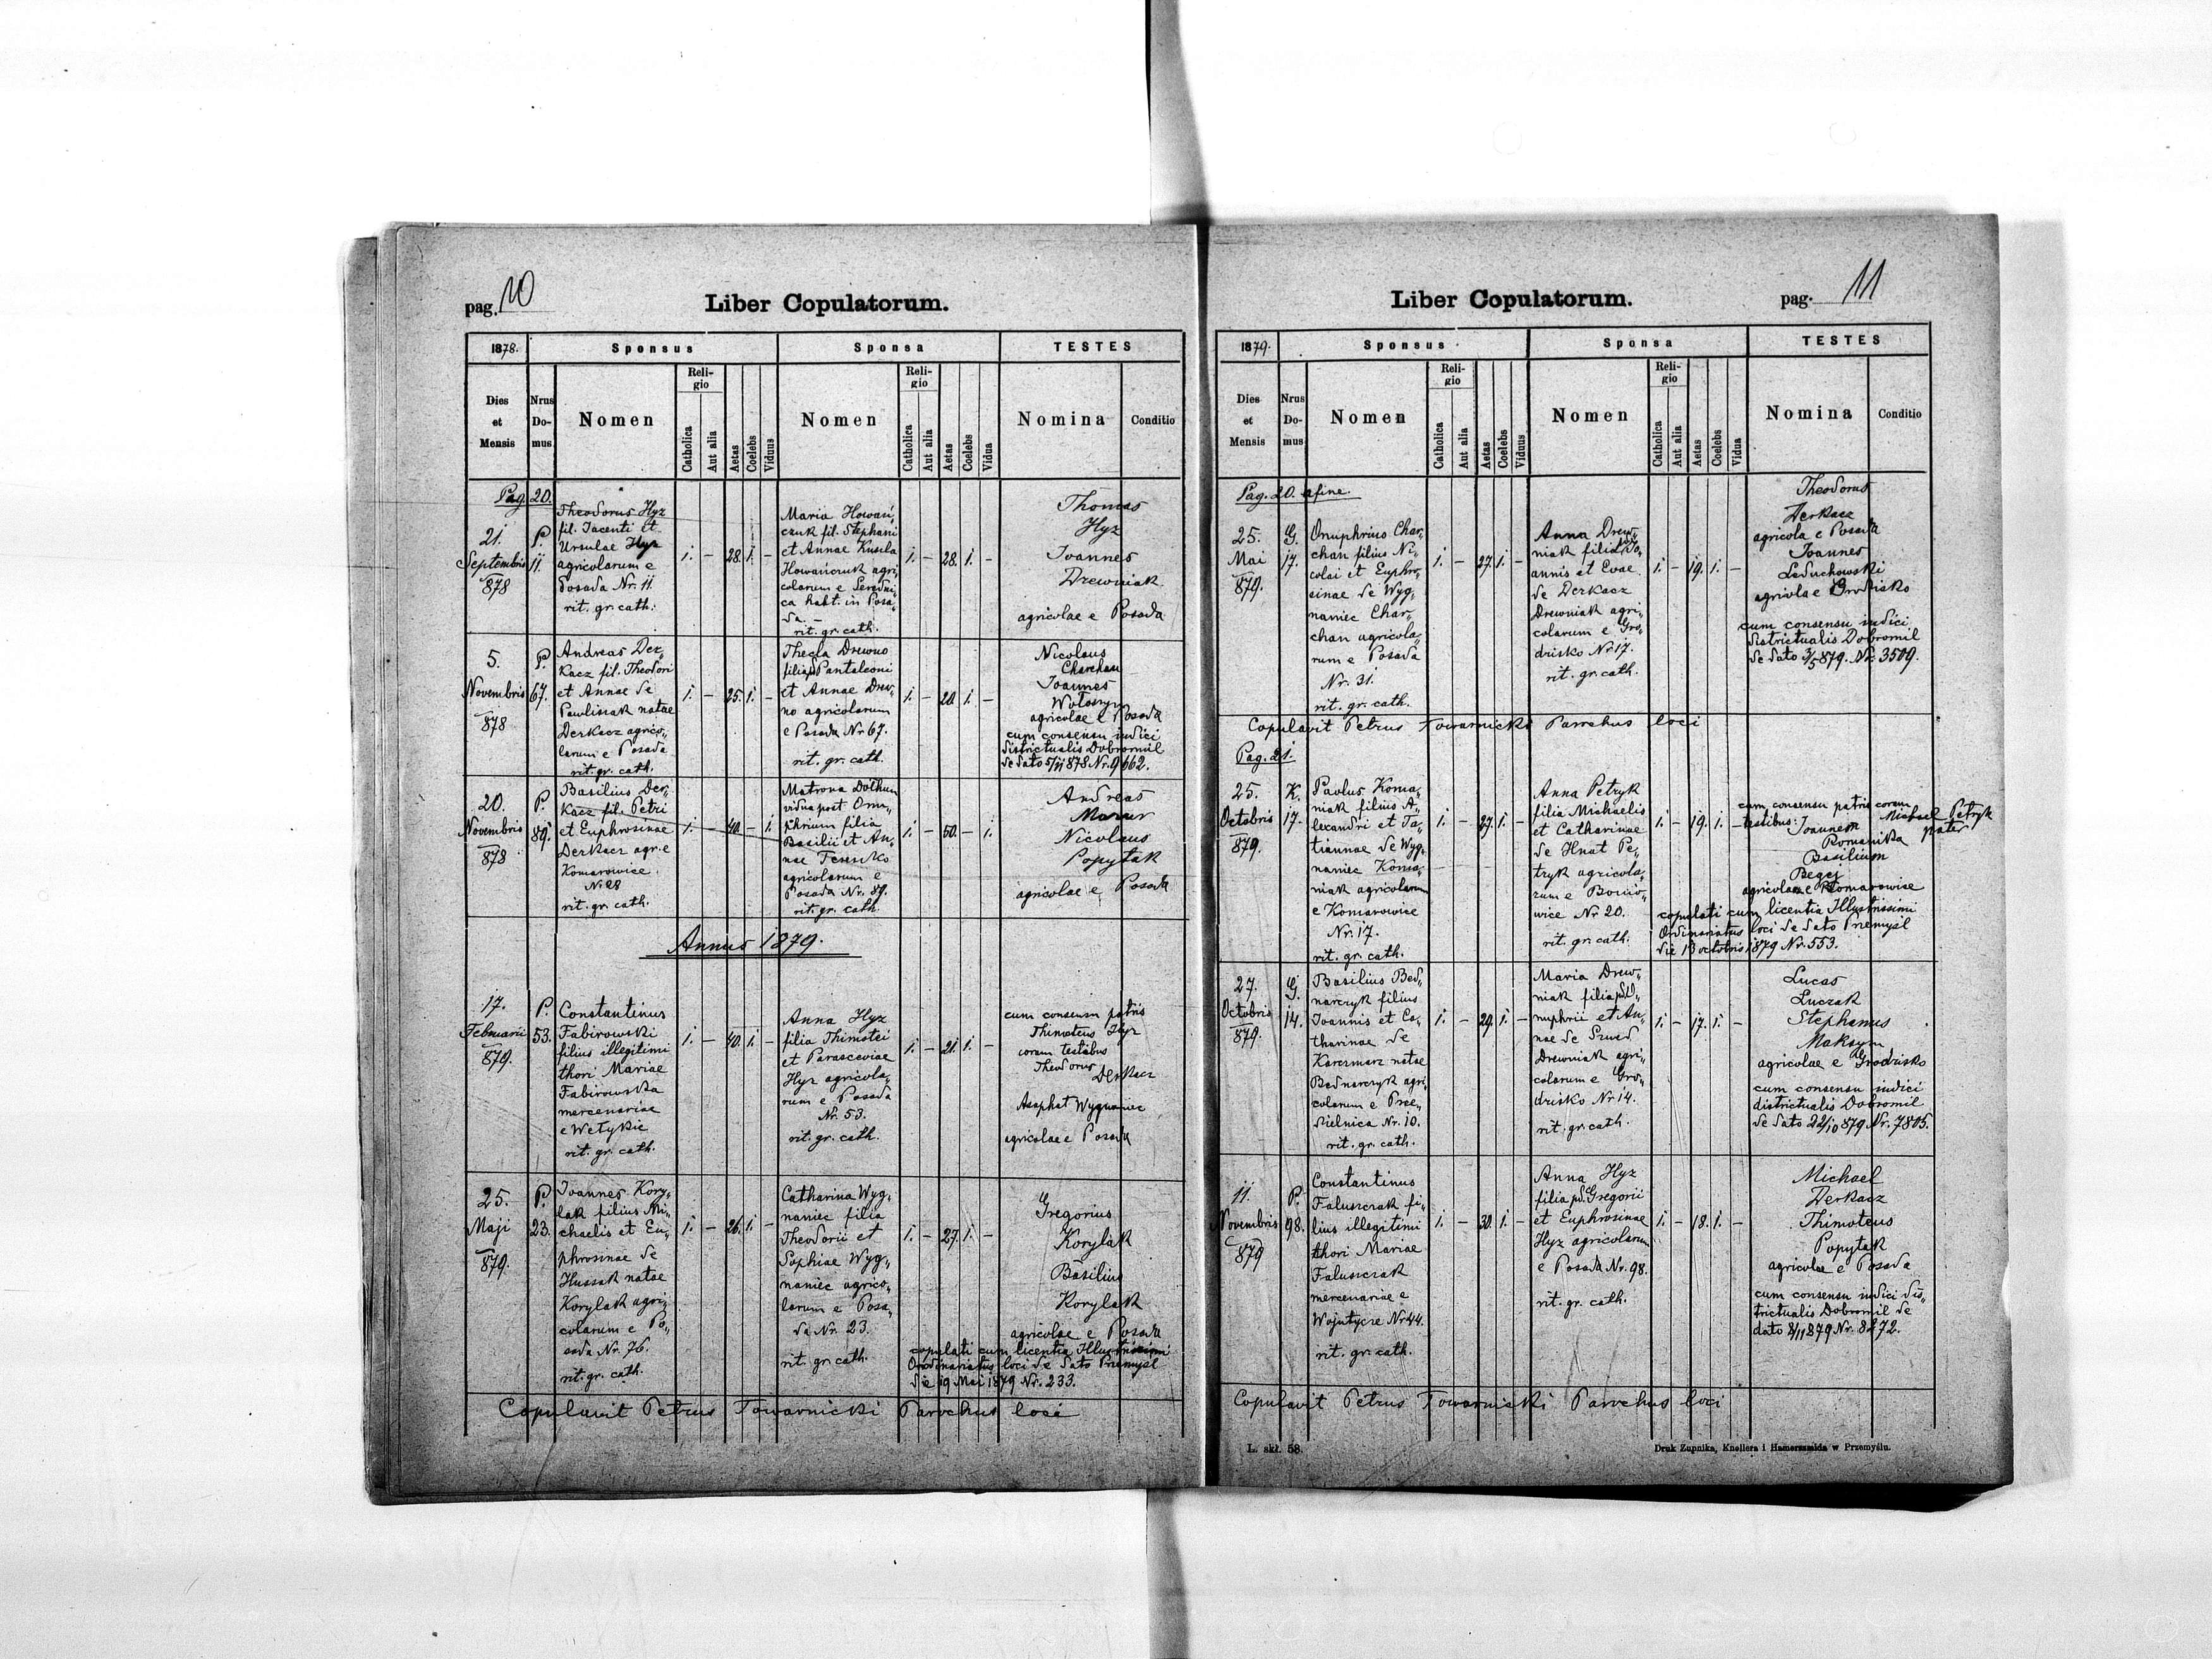 pag. 10
Liber Copulatorum.
1878.
Sponsus
Sponsa
TESTES
Dies et Mensis
Nrus Domus
Nomen
Religio
Catholica
Aut alia
Aetas
Coelebs
Viduus
Nomen
Religio
Catholica
Aut alia
Aetas
Coelebs
Vidua
Nomina
Conditio
Pag. 20.
21.
Septembris
878
P.
11.
Theodorus Hyz
fil. Jacenti et
Ursulae Hyz
agricolarum e
Posada Nr. 11.
rit. gr. cath.
1. – 28. 1. –
Maria Howań„
czuk fil. Stephani
et Annae Kusila
Howańczuk agri„
colarum e Seredni„
ca habt. in Posa„
da. –
rit. gr. cath.
1. – 28. 1. –
Thomas
Hyz
Joannes
Drewniak
agricolae e Posada
5.
Novembris
878
P.
67.
Andreas Der„
kacz fil. Theodori
et Annae de
Pawliszak natae
Derkacz agrico„
larum e Posada
rit. gr. cath.
1. – 25. 1. –
Thecla Drewno
filia pd Pantaleoni
et Annae Drew„
no agricolarum
e Posada Nr. 67.
rit. gr. cath.
1. – 20. 1. –
Nicolaus
Charchan
Joannes
Wołoszyn
agricolae e Posada
cum consensu iudici
districtualis Dobromil
de dato 5/11 878 Nr. 9662.
20.
Novembris
878
P.
89.
Basilius Der„
kacz fil. Petri
et Euphrosinae
Derkacz agr. e
Komarowice.
Nr. 28
rit. gr. cath.
1. – 40. – 1.
Matrona Dołhun
vidua post Onu„
phrium filia
Basilii et An„
nae
agricolarum e
Posada Nr. 89.
rit. gr. cath.
1. – 50. – 1.
Andreas
Mazur
Nicolaus
Popytak
agricolae e Posada
Annus 1879.
17.
Februarii
879.
P.
53.
Constantinus
Fabirowski
filius illegitimi
thori Mariae
Fabirowska
mercenariae
e Wełykie
rit. gr. cath.
1. – 40. 1. –
Anna Hyz
filia Thimotei
et Parasceviae
Hyz agricola„
rum e Posada
Nr. 53.
rit. gr. cath.
1. – 21. 1. –
cum consensu patris
Thimoteus Hyz
coram testibus
Theodorus
Derkacz
Asaphat Wygnaniec
agricolae e Posada
25.
Maji
879.
P.
23.
Joannes Kory„
lak filius Mi„
chaelis et Eu„
phrosinae de
Hussak natae
Korylak agri„
colarum e Po„
sada Nr. 76.
rit. gr. cath.
1. – 26. 1. –
Catharina Wyg„
naniec filia
Theodorii et
Sophiae Wyg„
naniec agrico„
larum e Posa„
da Nr. 23.
rit. gr. cath.
1. – 27. 1. –
Gregorius
Korylak
Basilius
Korylak
agricolae e Posada
copulati cum licentia Illustrissimi
Ordinariatus loci de dato Przemyśl
die 19 Mai 1879 Nr. 233.
Copulavit Petrus Towarnicki Parochus loci
pag. 11
Liber Copulatorum.
1879.
Sponsus
Sponsa
TESTES
Dies et Mensis
Nrus Domus
Nomen
Religio
Catholica
Aut alia
Aetas
Coelebs
Viduus
Nomen
Religio
Catholica
Aut alia
Aetas
Coelebs
Vidua
Nomina
Conditio
Pag. 20. a fine.
25.
Mai
879.
G.
17.
Onuphrius Char„
chan filius Ni„
colai et Euphro„
sinae de Wyg„
naniec Char„
chan agricola„
rum e Posada
Nr. 31.
rit. gr. cath.
1. – 27. 1. –
Anna Drew„
niak filia pd Jo„
annis et Evae
de Derkacz
Drewniak agri„
colarum e Gro„
dzisko Nr 17.
rit. gr. cath.
1. – 19. 1. –
Theodorus
Derkacz
agricola e Posada
Joannes
Leduchowski
agricolae Grodzisko
cum consensu iudici
districtualis Dobromil
de dato 3/5 879. Nr. 3509.
Copulavit Petrus Towarnicki Parochus loci
Pag. 21.
25.
Octobris
879.
K.
17.
Pavlus Koma„
niak filius A„
lexandri et Ta„
tiannae de Wyg„
naniec Koma„
niak agricolarum
e Komarowice
Nr. 17.
rit. gr. cath.
1. – 27. 1. –
Anna Petryk
filia Michaelis
et Catharinae
de Hnat Pe„
tryk agricola„
rum e Bonio„
wice Nr 20.
rit. gr. cath.
1. – 19. 1. –
cum consensu patris coram
testibus:
Michael Petryk
pater
Joannem
Romanika
Basilium
Begej
agricolae e Komarowice
copulati cum licentia Illustrissimi
Ordinariatus loci de dato Przemyśl
die 13 octobris 1879 Nr. 553.
27.
Octobris
879.
G.
14.
Basilius Bed„
narczyk filius
Joannis et Ca„
tharinae de
Karczmarz natae
Bednarczyk agri„
colarum e Prze„
dielnica Nr. 10.
rit. gr. cath.
1. – 29. 1. –
Maria Drew„
niak filia pd O„
nuphrii et An„
nae de Szwed
Drewniak agri„
colarum e Gro„
dzisko Nr 14.
rit. gr. cath.
1. – 17. 1. –
Lucas
Luczak
Stephanus
Maksym
agricolae e Grodzisko
cum consensu iudici
districtualis Dobromil
de dato 22/10 879 Nr. 7805.
11.
Novembris
879
P.
98.
Constantinus
Faluszczak fi„
lius illegitimi
thori Mariae
Faluszczak
mercenariae e
Wojutycze Nr 44.
rit. gr. cath.
1. – 30. 1. –
Anna Hyz
filia pd. Gregorii
et Euphrosinae
Hyz agricolarum
e Posada Nr. 98.
rit. gr. cath.
1. – 18. 1. –
Michael
Derkacz
Thimoteus
Popytak
agricolae e Posada
cum consensu iudici dis„
trictualis Dobromil de
dato 8/11 879 Nr. 8272.
Copulavit Petrus Towarnicki Parochus loci
L. skł. 58.
Druk Żupnika, Knollera i Hamerszmida w Przemyślu.